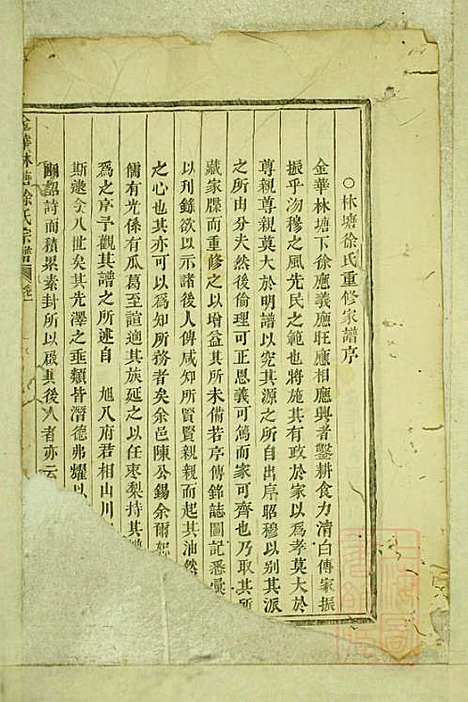 ○林塘徐氏重修家譜序
金華林塘下徐應義應旺應相應興者鑿耕食力清白傳家振
振乎沕穆之風先民之範也將施其有政於家以為孝莫大於
尊親尊親莫大於明譜以究其源之所自出序昭穆以別其派
之所由分夫然後倫理可正恩義可篤而家可齊也乃取其所
藏家牒而重修之以增益其所未備若序傳銘誌圖記悉彙
以刋錄欲以示諸後人傳咸知所賢賢親親而起其油然
之心也其亦可以為知所務者矣余邑陳公錫余爾
儒有光係有瓜葛至誼適其族延之以任棗梨持其
為之序予觀其譜之所述自 旭八府君相山川
斯逮今八世矣其先澤之垂類皆潛德弗耀以
嗣詔詩而積累素封所以啟其後人者亦云
金華林塘徐氏宗譜